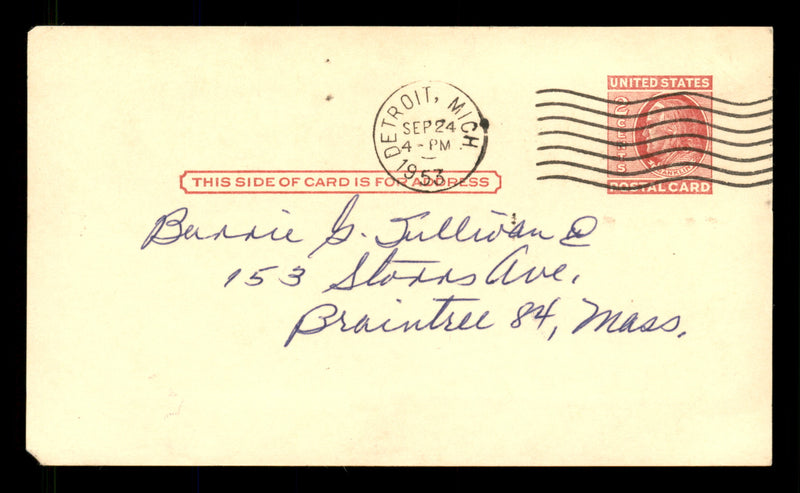 UNITED STATES
2 CENTS
FRANKLIN
POSTAL CARD
DETROIT, MICH
SEP 24
4 - PM
1953
THIS SIDE OF CARD IS FOR ADDRESS
G. Sullivan
153 Storrs Ave.
Braintree 84, Mass.